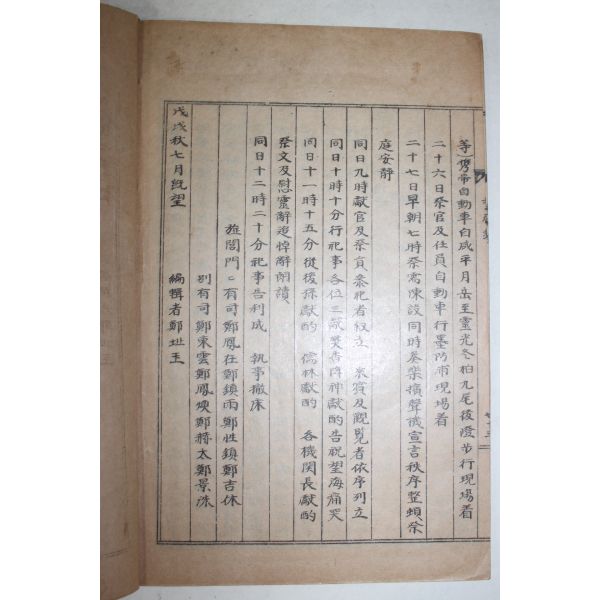 等)携帶自動車白咸平月岳至靈光冬柏九尾後澄步行現場着
二十六日祭官及任員自動車行墨防浦現場着
二十七日早朝七時祭需陳設同時奏樂擴聲機宣言秩序整頓祭
庭安靜
同日九時獻官及祭員參祀者叙立 來賓及觀覽者依序列立
同日十時十分行祀事各位三獻焚香降神獻酌告祝望海痛哭
同日十一時十五分從後孫獻酌 儒林獻酌 各機関長獻酌
祭文及慰靈辭追悼辭朗讀
同日十二時二十分祀事告利成 執事撤床
旌閭門二有司鄭鳳在鄭鎮雨鄭性鎮鄭吉休
別有司鄭東雲鄭鳳煥鄭蔣太鄭景洙
戊戌秋七月旣望 編輯者鄭址玉